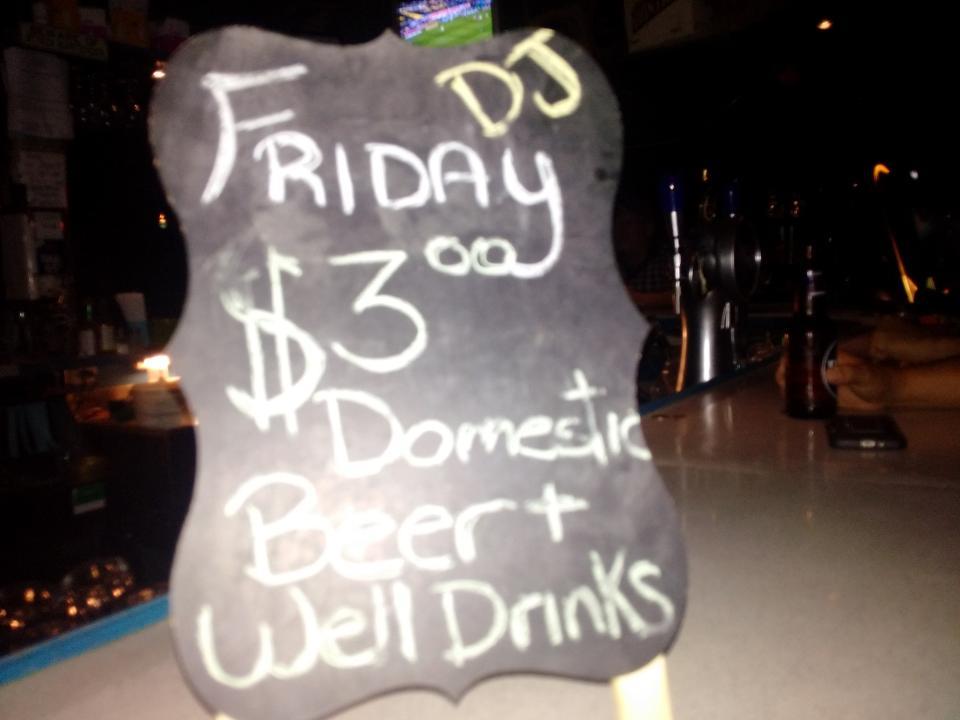 DJ
FRIDAY
$3.00
Domestic
Beer +
Well Drinks